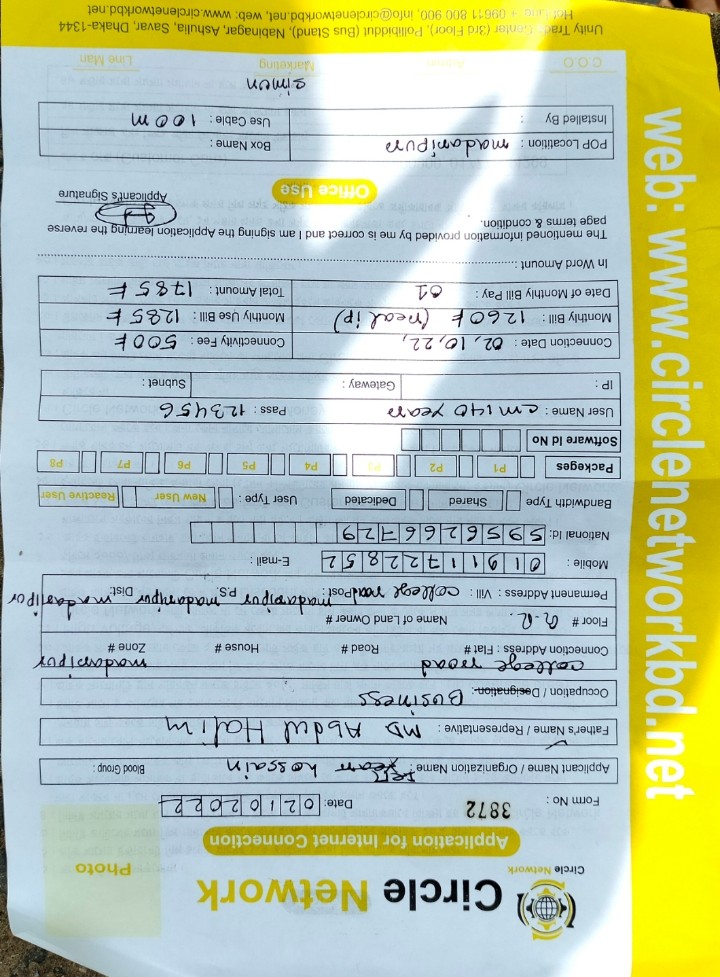 Circle Network
Circle Network
Photo
Application for Internet Connection
Form No : 3872 Date: 02102022
Applicant Name / Organization Name : hossain Blood Group :
Father's Name / Representative : MD Abdul Halim
Occupation / Designation: Business
college road madaripur
Connection Address : Flat # Road # House # Zone #
Floor # Name of Land Owner #
Permanent Address : Vill : college road Post : madaripur P.S. madaripur Dist. madaripur
Mobile : 01911722852 E-mail :
National Id: 5956266729
Bandwidth Type Shared Dedicated User Type : New User Reactive User
Packeges P1 P2 P3 P4 P5 P6 P7 P8
Software Id No
User Name : cm140 Pass : 123456
IP : Gateway : Subnet :
Connection Date : 02,10,22, Connectivity Fee : 500 ৳
Monthly Bill : 1260 ৳ (real ip) Monthly Use Bill : 1285 ৳
Date of Monthly Bill Pay : 01 Total Amount : 1785 ৳
In Word Amount :
The mentioned information provided by me is correct and I am signing the Application learning the reverse
page terms & condition.
Applicant's Signature
Office Use
POP Locattion : madaripur Box Name :
Installed By : Use Cable : 100m
simon
C.O.O Admin Marketing Line Man
Unity Trade Center (3rd Floor), Pollibiddut (Bus Stand), Nabinagar, Ashulia, Savar, Dhaka-1344
Hotline + 09611 800 900, info@circlenetworkbd.net, web: www.circlenetworkbd.net
web: www.circlenetworkbd.net